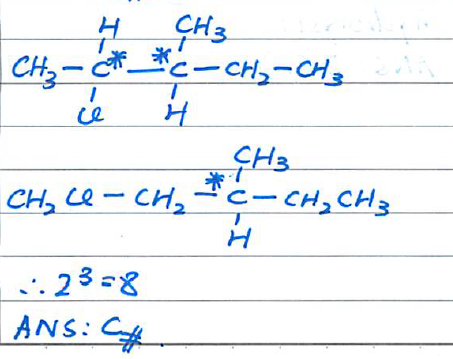 H CH₃
CH₃ – C* – *C – CH₂ – CH₃
Cl H
CH₃
CH₂Cl – CH₂ – *C – CH₂CH₃
H
∴ 2³ = 8
ANS: C//